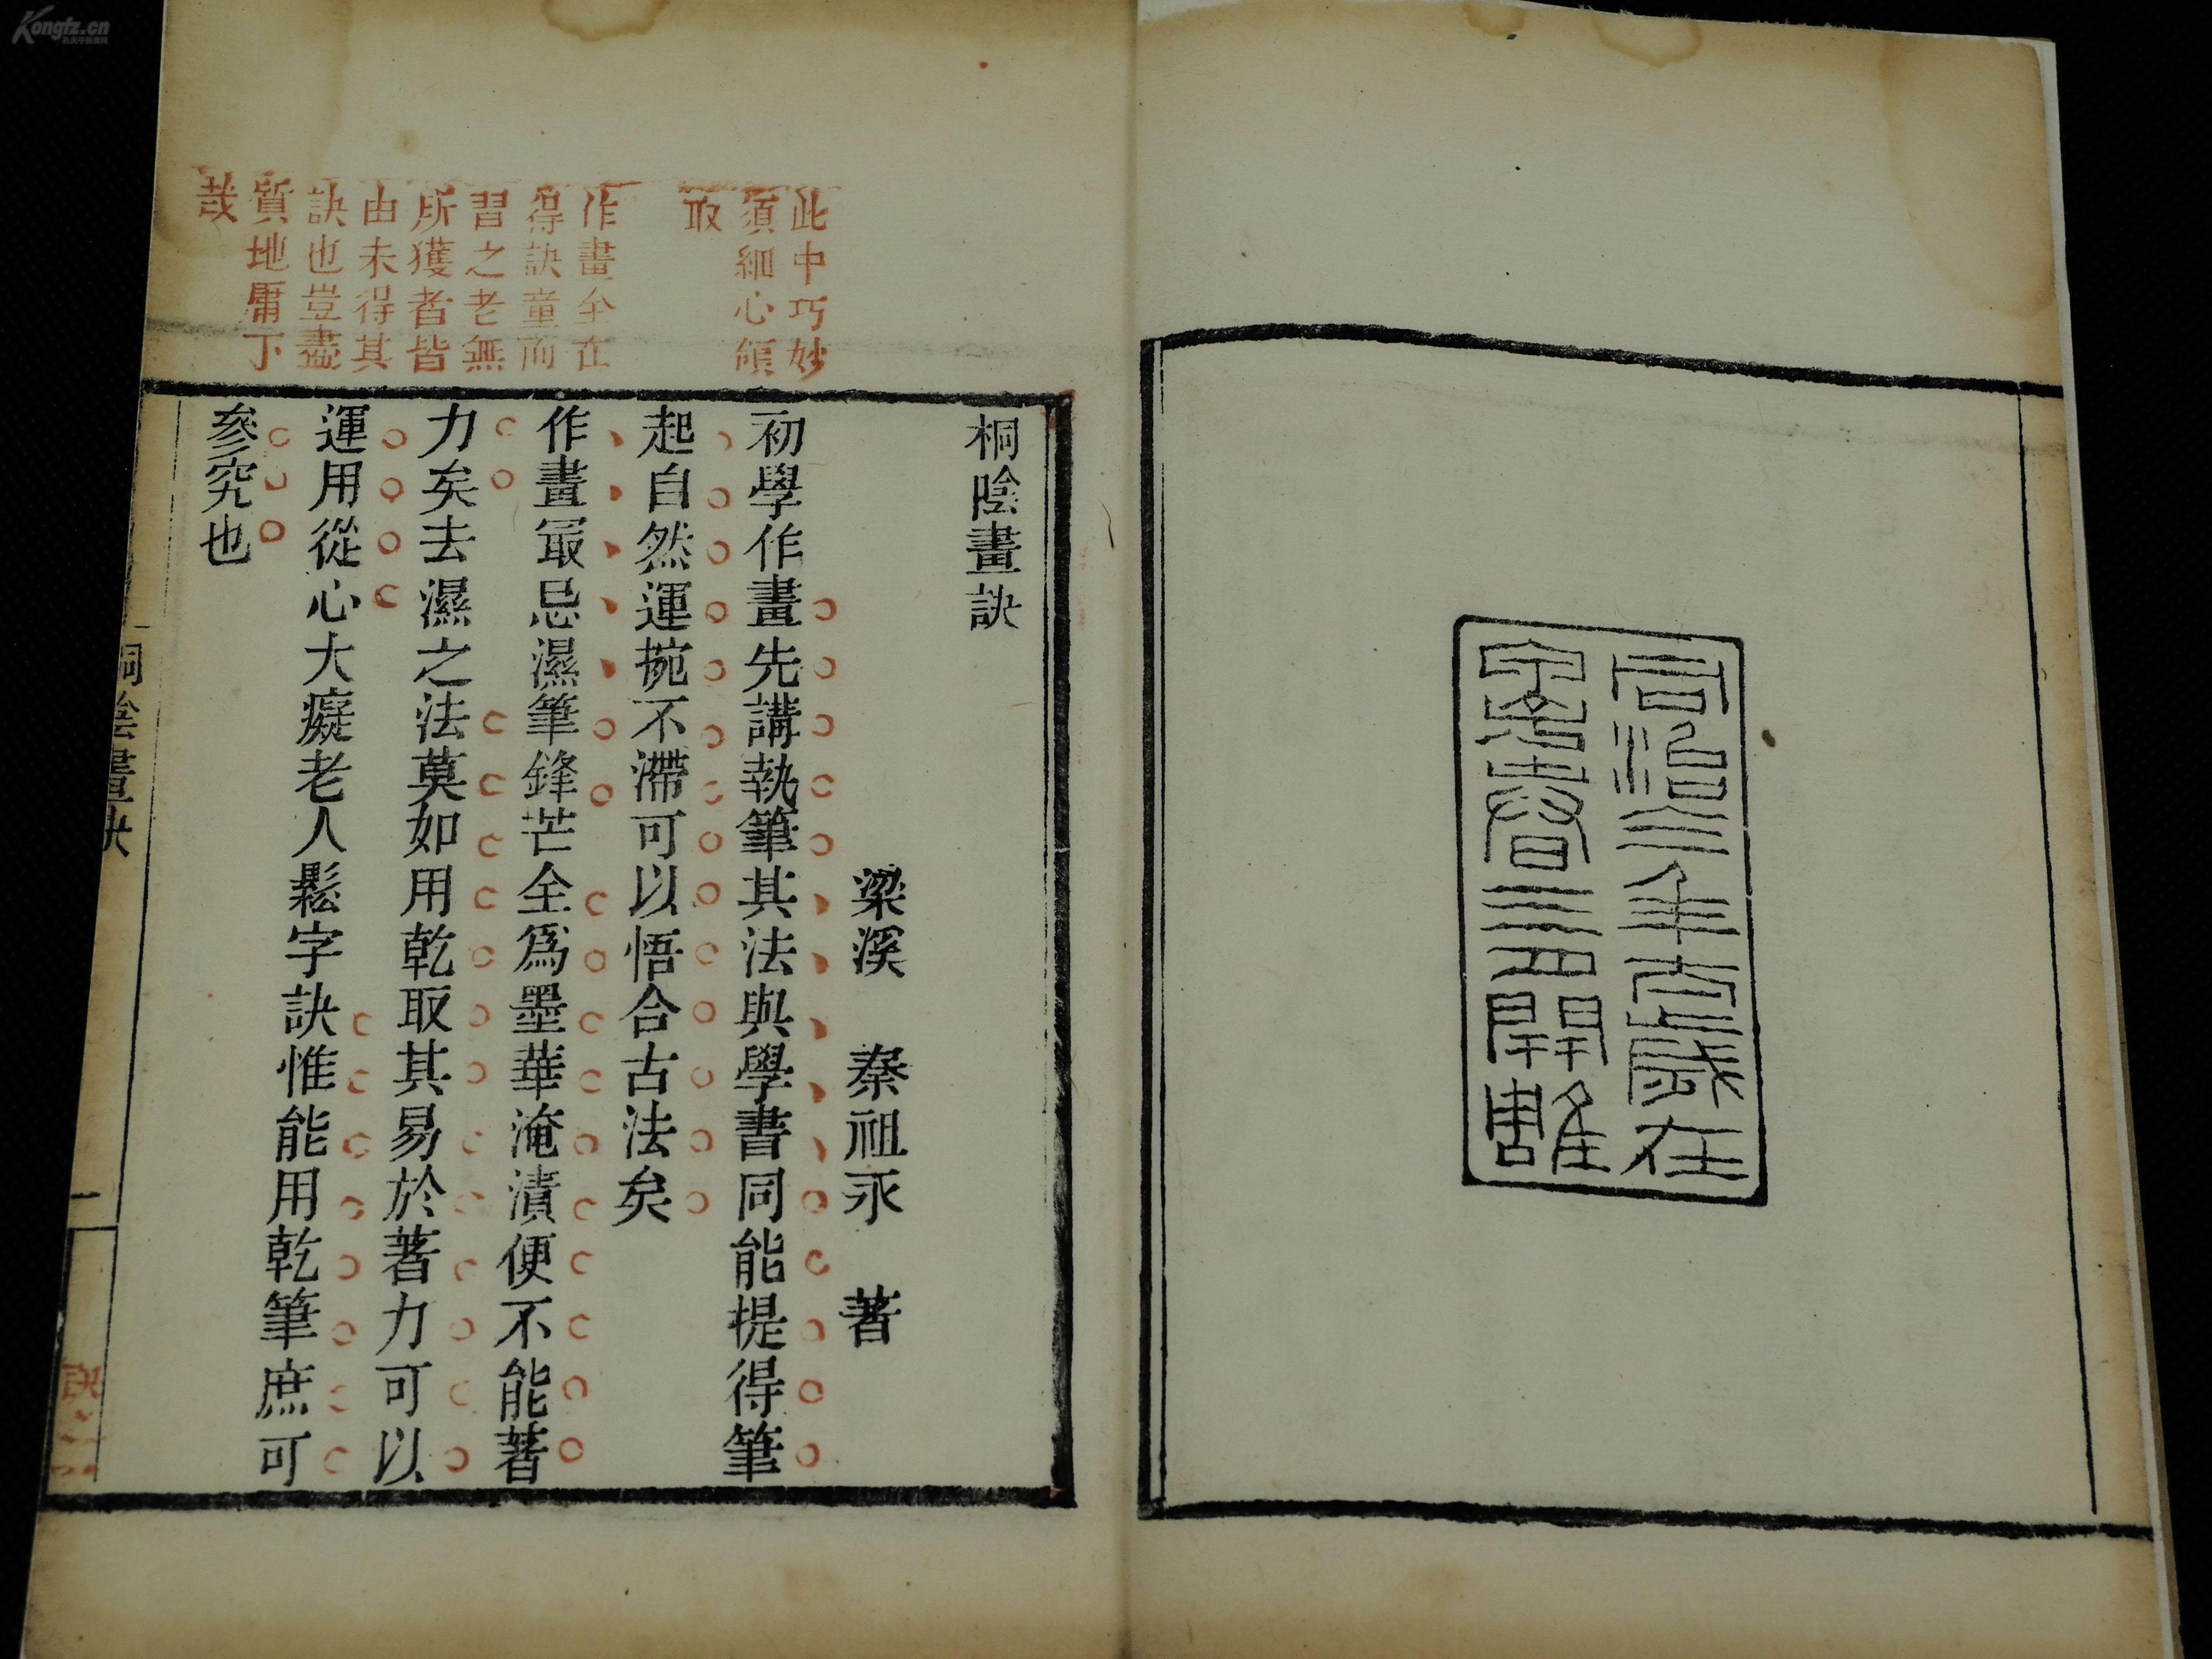 同治三年太歲在
甲子春三月開雕
此中巧妙
須細心領
取
作畫全在
得訣童而
習之老無
所獲者皆
由未得其
訣也豈盡
質地庸下
哉
桐陰畫訣
梁溪 秦祖永 著
初學作畫先講執筆其法與學書同能提得筆
起自然運捥不滯可以悟合古法矣
作畫冣忌濕筆鋒芒全爲墨華淹漬便不能著
力矣去濕之法莫如用乾取其易於著力可以
運用從心大癡老人鬆字訣惟能用乾筆庶可
參究也
桐陰畫訣
一
訣
Kongfz.cn
孔夫子旧书网